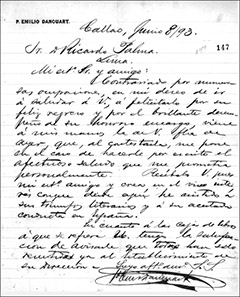 P. EMILIO DANCUART.
Callao, Junio 8/93.
147
Sr. D Ricardo Palma.
Lima.
Mi att° Sr. y amigo:
Contrariado por numero
sas ocupaciones, en mi deseo de ir
á saludar á V., á felicitarlo por su
feliz regreso y por el brillante desem
peño de su honroso encargo, viene
á mis manos la de V. fha de
ayer, que, agustado, me pone
en el caso de hacerlo por escrito el
afectuoso saludo que me prometia
personalmente. Recíbalo V. pues
mi att° amigo y crea en el vivo inte
rés con que desde aquí he asistido á
sus triunfos literarios y á su acertada
conducta en España.
En cuanto á la caja de libros
á que se refiere V. tengo la satisfac
cion de avisarle que todos han sido
remitidos ya al establecimiento de
su direccion